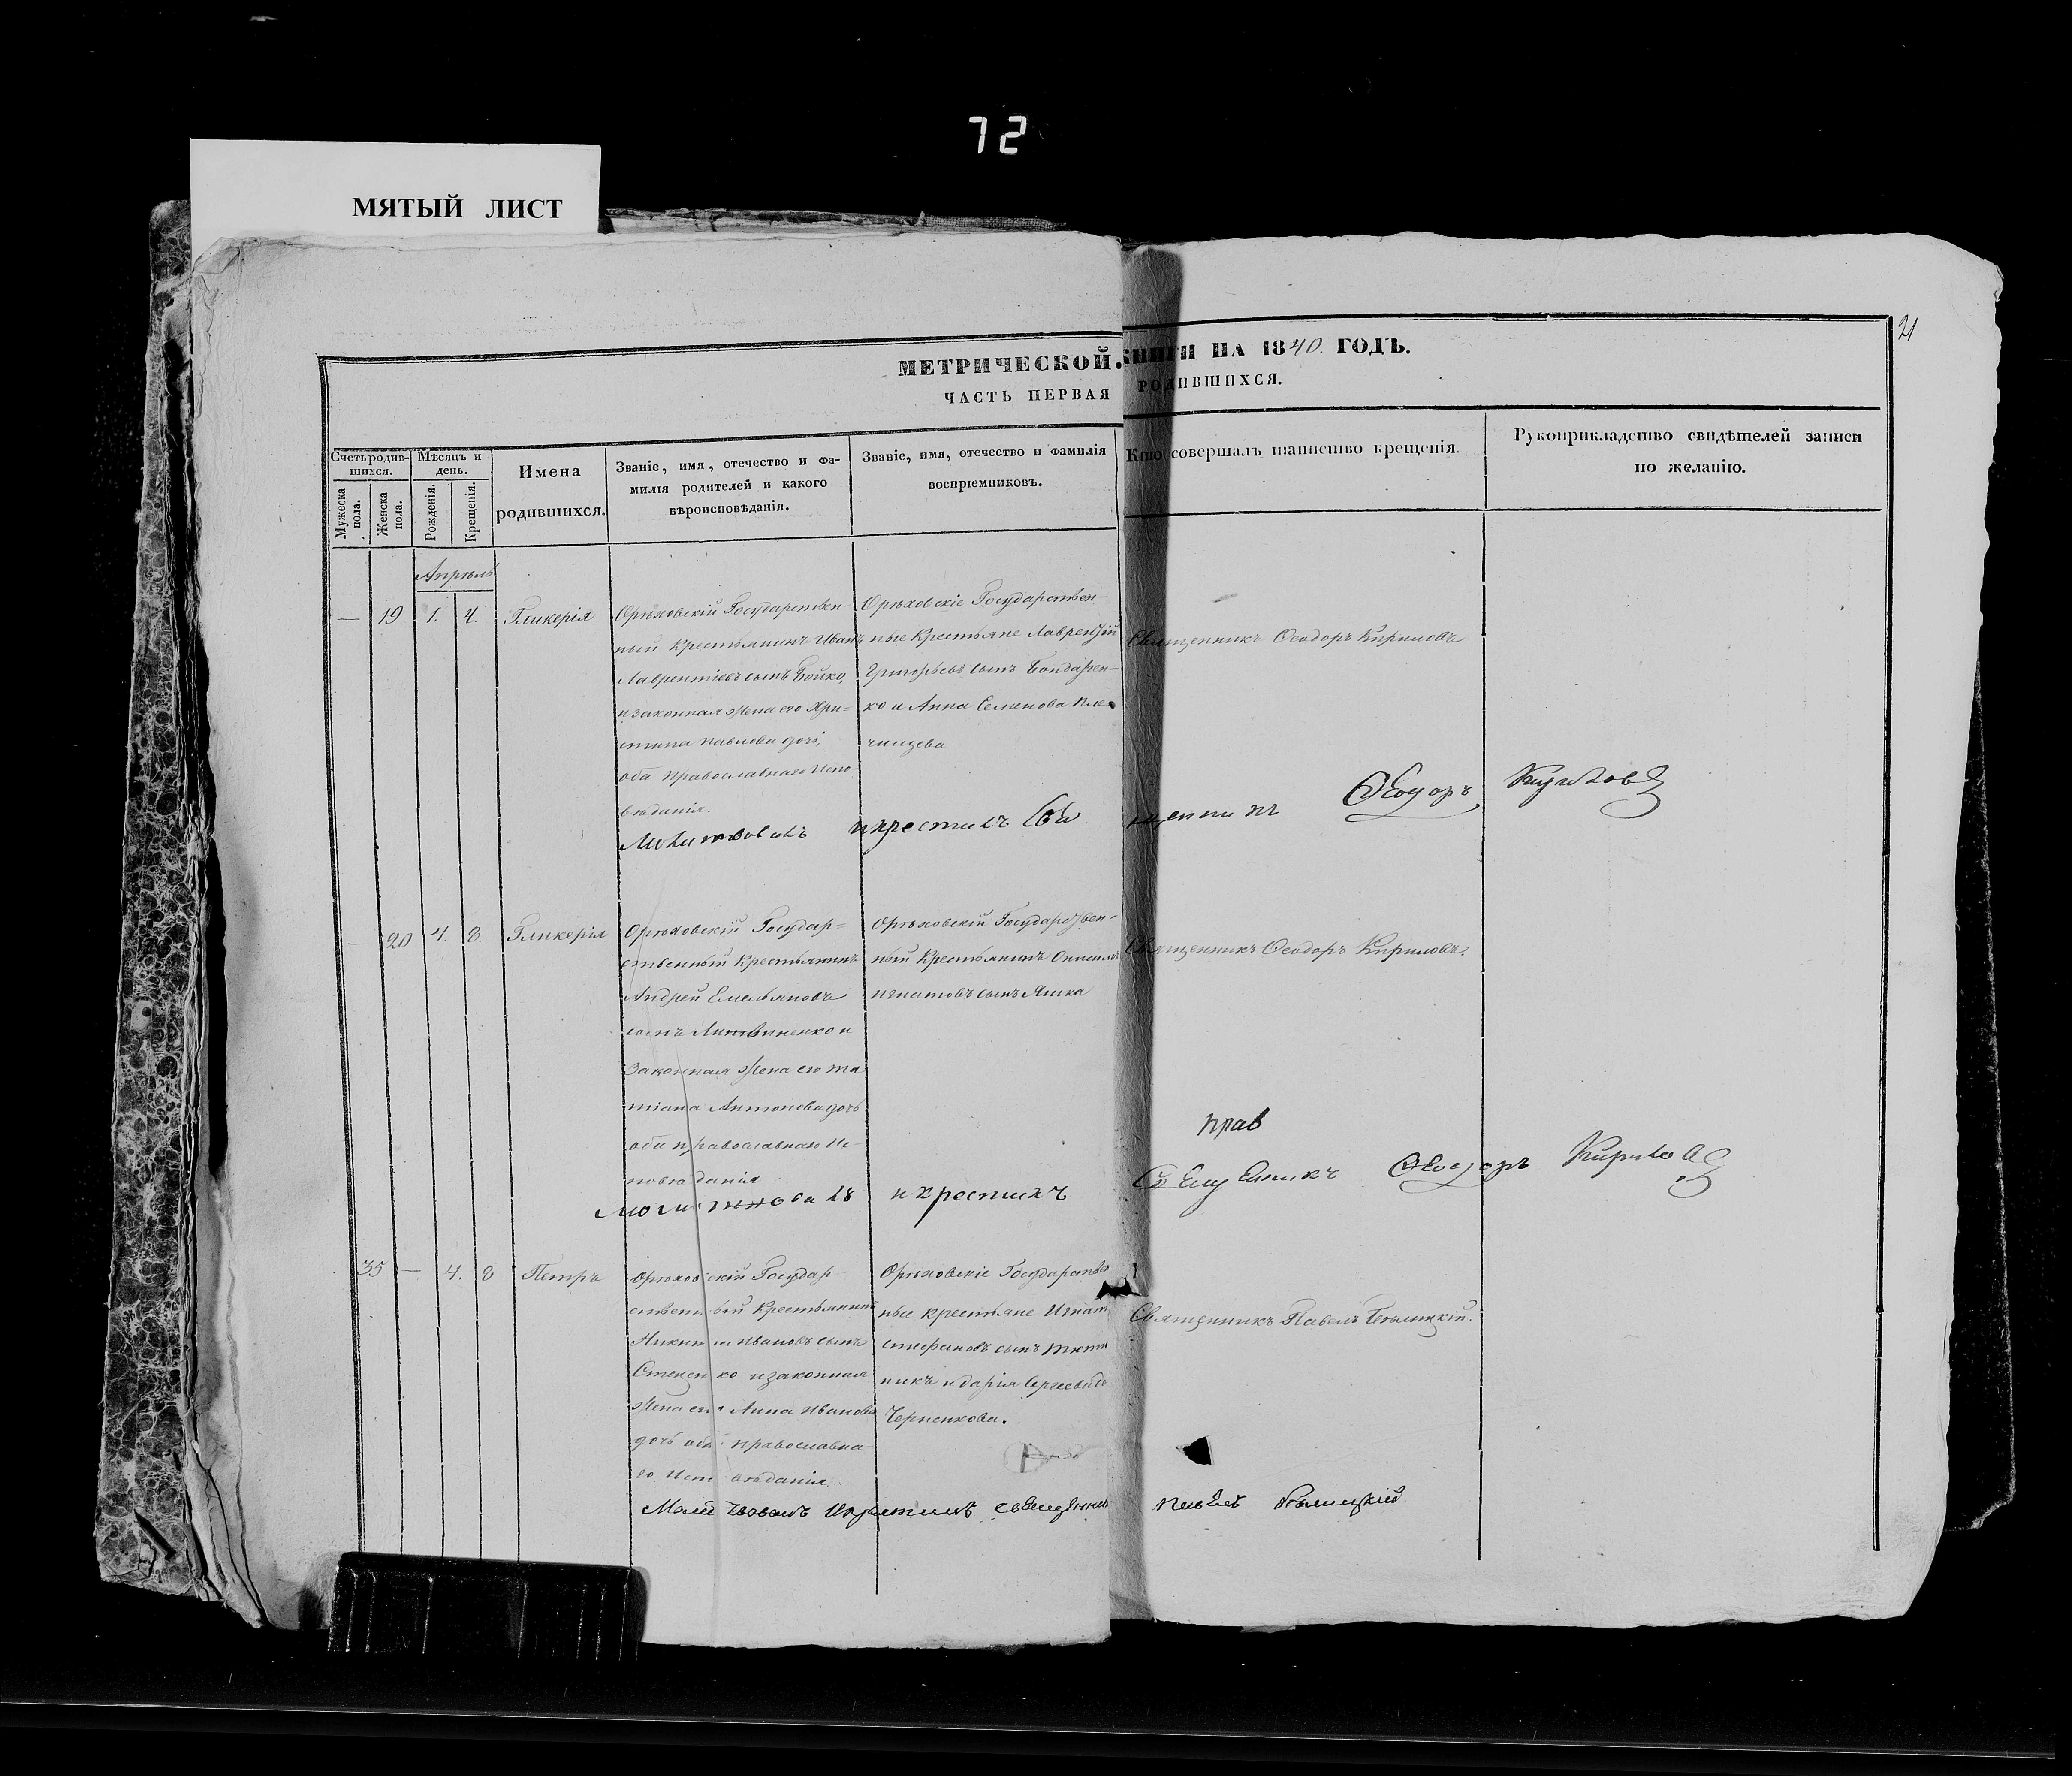 72
МЯТЫЙ ЛИСТ
21
МЕТРИЧЕСКОЙ КНИГИ НА 1840. ГОДЪ.
ЧАСТЬ ПЕРВАЯ РОДИВШИХСЯ.
Счетъ родившихся.
Мужеска пола.
Женска пола.
Мѣсяцъ и день.
Рожденія.
Крещенія.
Имена родившихся.
Званіе, имя, отечество и фа-
милія родителей и какого
вѣроисповѣданія.
Званіе, имя, отечество и фамилія
воспріемниковъ.
Кто совершалъ таинство крещенія.
Рукоприкладство свидѣтелей записи
по желанію.
Апрѣль
— 19 1. 4. Гликерія
Орѣховскій Государствен-
ный Крестьянинъ Иванъ
Лаврентіевъ сынъ Бойко,
и законная жена его Хри=
стина Павлова дочь,
оба православнаго Испо
вѣданія.
Орѣховскіе Государствен-
ные Крестьяне Лаврентій
Григорьевъ сынъ Бондарен-
ко и Анна Семенова
Священникъ Ѳеодоръ Кириловъ
Молитвовалъ и крестилъ Священникъ Ѳеодоръ Кириловъ
20 4. 8. Гликерія
Орѣховскій Государ=
ственный Крестьянинъ
Андрей Емельяновъ
сынъ Литвиненко и
законная жена его Та
тіана Антонова дочь
оба православнаго Ис-
повѣданія
Орѣховскій Государствен-
ный Крестьянинъ
Игнатовъ сынъ Яшка
Священникъ Ѳеодоръ Кириловъ.
прав
Молитвовалъ и крестилъ Священникъ Ѳеодоръ Кириловъ
35 — 4. 8 Петръ
Орѣховскій Государ
ственный Крестьянинъ
Никита Ивановъ сынъ
Стеценко и законная
жена его Анна Иванова
дочь оба православна
го Исповѣданія
Орѣховскіе Государствен
ные крестьяне Игнатъ
Стефановъ сынъ
никъ и Дарія Сергеева
Черненкова.
Священникъ Павелъ Бѣлицкій.
Молитвовалъ и крестилъ Священникъ Павелъ Бѣлицкій